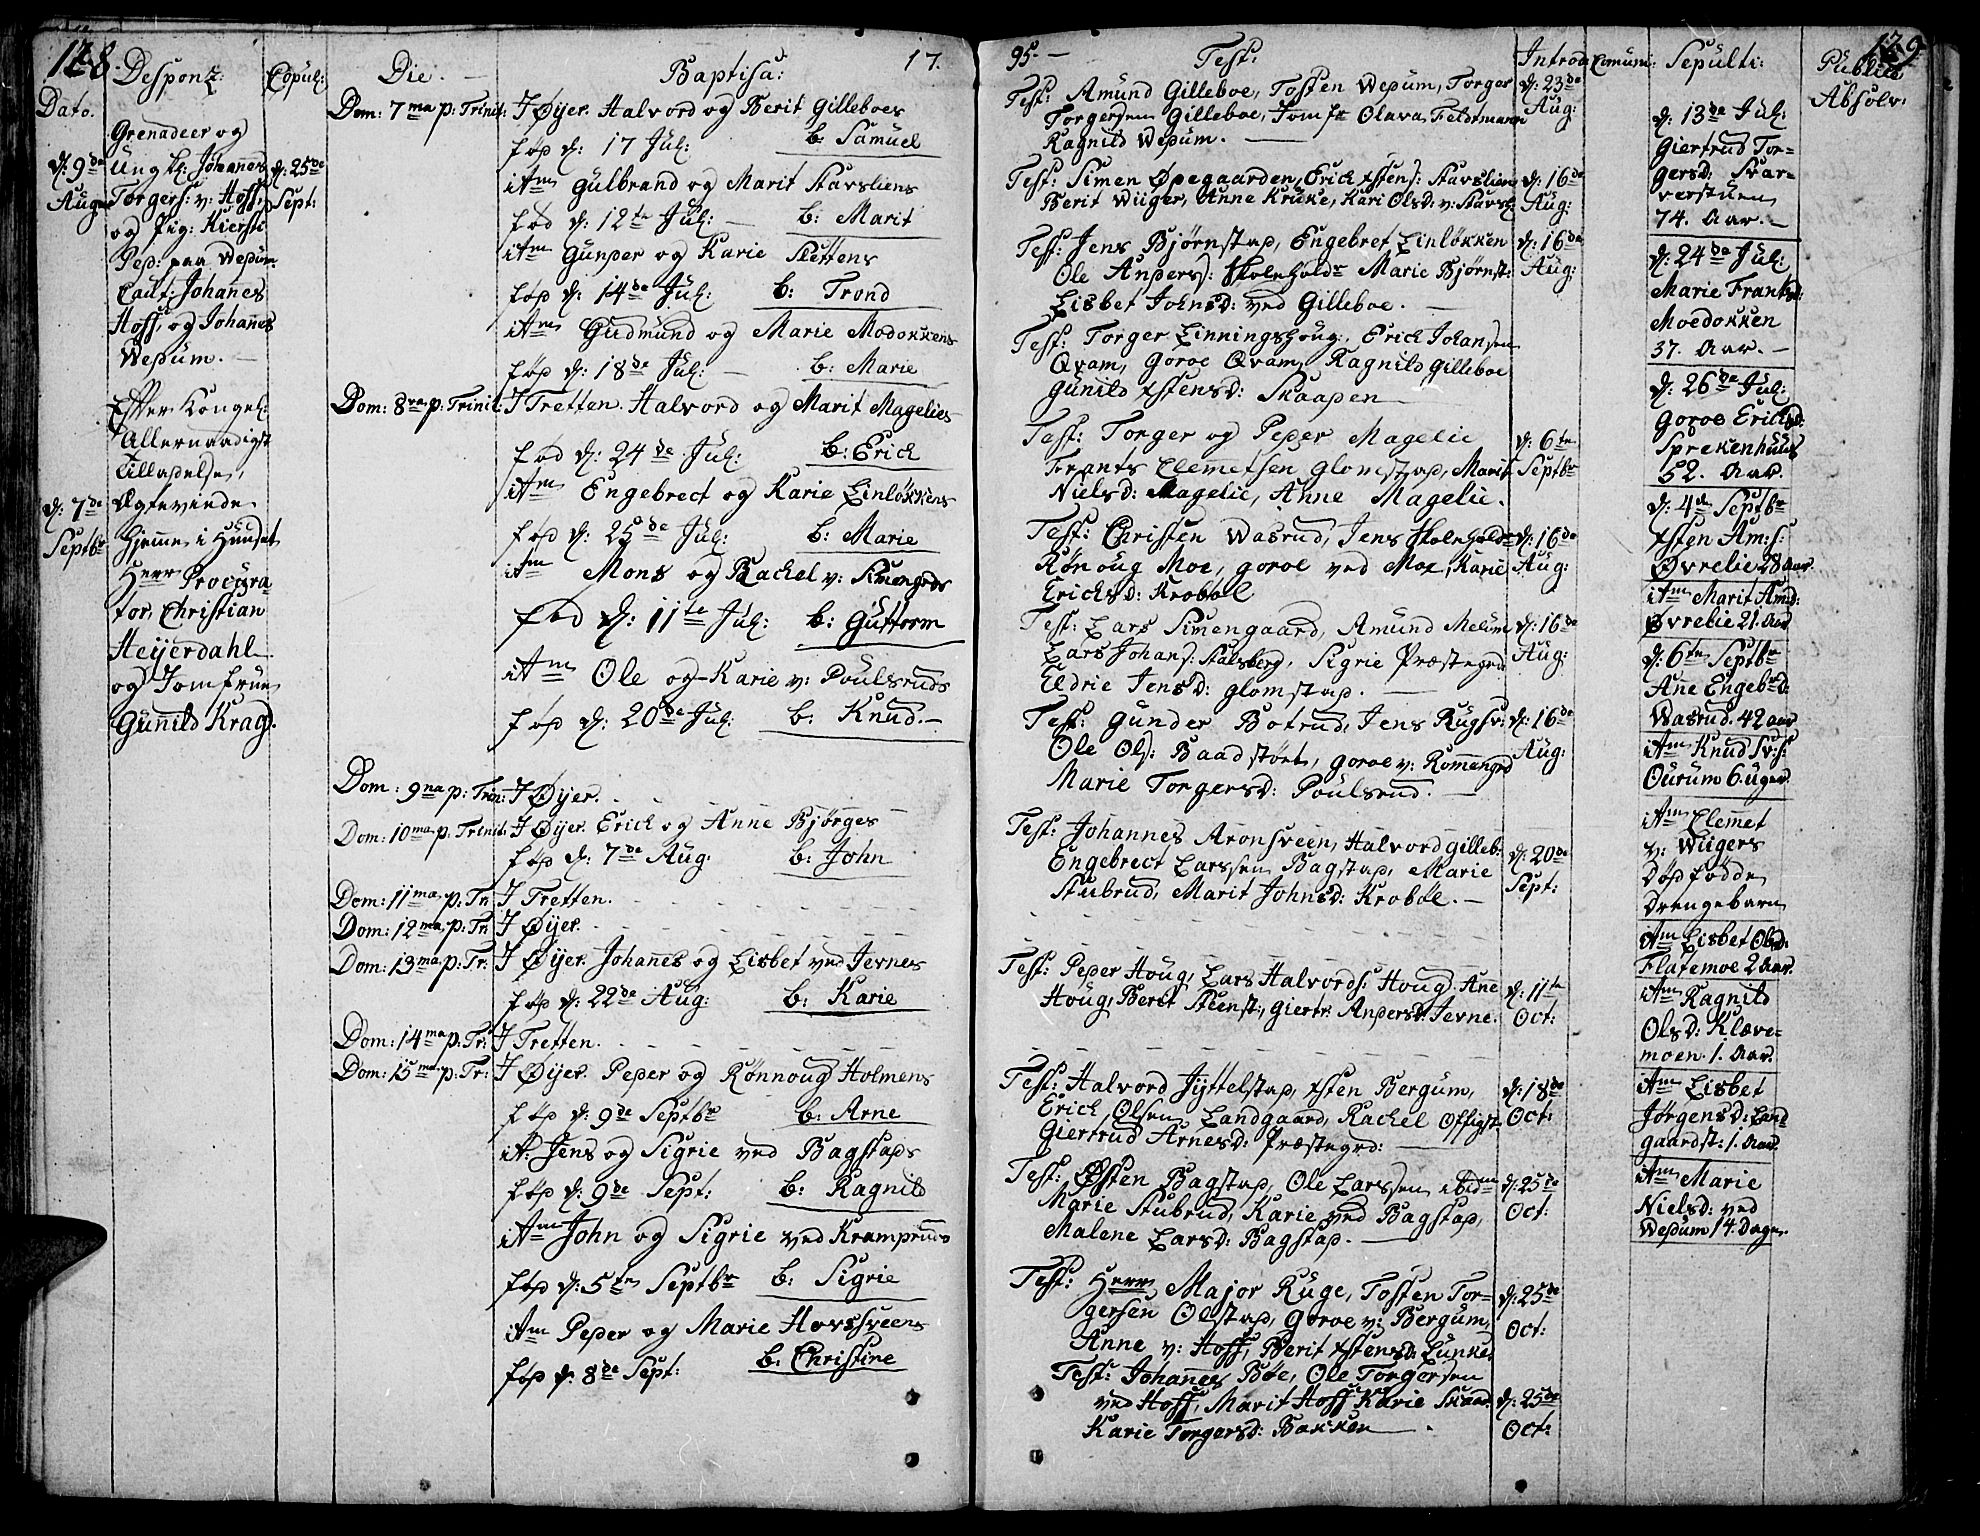 128
Desponz:
Copul:
Die.
Baptisa:
17.
Dato.
Grenadeer og
Ung k: Johanes
Torgers: v: Hoff,
og Pig: Kiersti
Ped: paa Wedum.
Caut: Johanes
Hoff, og Johanes
Wedum.
d: 9de
Aug
d: 25de
Sept:
Efter Kongel:
Allernaadigst
Tilladelse,
Ægteviede
Hjeme i Huuset
Herr Procura
tor, Christian
Heyerdahl
og Jomfrue
Gunild Krag.
d: 7de
Septbr
Dom: 7ma p: Trinit: I Øyer. Halvord og Berit Gilleboes
fød d: 17 Jul: b: Samuel
itm Gulbrand og Marit Stavsliens
fød d: 12te Jul: b: Marit
itm Gunder og Karie Slettens
fød d: 14de Jul: b: Trond
itm Gudmund og Marie Modokkens
fød d: 18de Jul: b: Marie
Dom: 8va p: Trinit: I Tretten. Halvord og Marit Magelies
fød d: 24de Jul: b: Erick
itm Engebrect og Karie Linløkkens
fød d: 25de Jul: b: Marie
itm Mons og Rachel v: Simengrds
fød d: 11te Jul: b: Guttorm
itm Ole og Karie v: Poulsruds
fød d: 20de Jul: b: Knud.
Dom: 9na p: Trin: I Øyer.
Dom: 10ma p: Trinit: I Øyer. Erick og Anne Bjørges
fød d: 7de Aug: b: John
Dom: 11ma p: Tr: I Tretten.
Dom: 12ma p: Tr: I Øyer.
Dom: 13ma p: Tr: I Øyer. Johanes og Lisbet ved Jevnes
fød d: 22de Aug: b: Karie
Dom: 14ma p: Tr: I Tretten.
Dom: 15ma p: Tr: I Øyer. Peder og Rønnoug Holmens
fød d: 9de Septbr b: Arne
it: Jens og Sigrie ved Bagstads
fød d: 9de Sept: b: Ragnild
itm John og Sigrie ved Kramprude
fød d: 5te Septbr b: Sigrie
itm Peder og Marie Hovssveens
fød d: 8de Sept: b: Christine
95.
Test:
Introd:
Comuni:
Sepulti:
Publice
Absolv:
129
Test: Amund Gilleboe, Tosten Wedum, Torger
Torgersen Gilleboe, Jomfr Olava Feldtmann
Ragnild Wedum.
d: 23de
Aug:
Test: Simen Øvegaarden, Erick Estens: Stavslien
Berit Wiiger, Anne Kruke, Kari Olsd: v: Stavsl:
d: 16de
Aug:
Test: Jens Bjørnstad, Engebret Linløkken
Ole Anders: Skoleholdr Marie Bjørnst:
Lisbet Johnsd: ved Gilleboe.
d: 16de
Aug:
Test: Torger Linningshoug, Erick Johansen
Qvam, Goroe Qvam, Ragnild Gilleboe
Gunild Estensd: Skaaden
Test: Torger og Peder Magelie
Clemetsen Glomstad, Marit
Nielsd: Magelie, Anne Magelie.
d: 6te
Septbr
Test: Christen Wasrud, Jens Skoleholdr
Rønoug Moe, Goroe ved Moe, Karie
Ericksd: Krobøl
d: 16de
Aug:
Test: Lars Simengaard, Amund Melum
Lars Johans: Stalsberg, Sigrie Præstegrd
Eldrie Jensd: Glomstad.
d: 16de
Aug:
Test: Gunder Botrud, Jens Rugsv:
Ole Ols: Baadstørt, Goroe v: Romengrd
Marie Torgersd: Poulsrud.
d: 16de
Aug:
Test: Johannes Aronsveen, Halvord Gilleb:
Engebrect Larssen Bagstad, Marie
Stubrud, Marit Johnsd: Krobøl.
d: 20de
Sept:
Test: Peder Houg, Lars Halvords: Houg. Ane
Houg, Berit Steenst:, Giertr. Andersd: Jevne.
d: 11te
Oct:
Test: Halvord Jyttelstad, Esten Bergum,
Erick Olsen Landgaard, Rachel Offigst:
Giertrud Arnesd: Præstegrd:
d: 18de
Oct:
Test: Østen Bagstad, Ole Larssen ibidm
Marie Stubrud, Karie ved Bagstad,
Malene Larsd: Bagstad.
d: 25de
Oct:
Test: Herr Major Ruge, Tosten Tor-
gersen Olstad, Goroe v: Bergum,
Anne v: Hoff, Berit Estensd: Lunke,
d: 25de
Oct:
Test: Johanes Bøe, Ole Torgersen
ved Hoff, Marit Hoff Karie Skaad:
Karie Torgersd: Bakken
d: 25de
Oct:
d: 13de Jul:
Giertrud Tor-
gersd: Svar-
verstuen
74. Aar.
d: 24de Jul:
Marie Franksd:
Moedokken
37. Aar.
d: 26de Jul:
Goroe Ericksd:
Sprekenhuus
52. Aar.
d: 4de Septbr
Esten Am:s:
Øvrelie 28 aar
itm Marit Amd:
Øvrelie 21. Aar
d: 6te Septbr
Ane Engebrd:
Wasrud. 42 aar
itm Knud Sv:s:
Ourum 6. uger
itm Clemet
v: Wiigers
Død fødde
Drengebarn
itm Lisbet Olsd:
Flatemoe 2 Aar.
itm Ragnild
Olsd: Klæve-
moen. 1. Aar.
itm Lisbet
Jørgensd: Land
gaardst: 1. Aar.
itm Marie
Nielsd: ved
Wedum 14. Dage